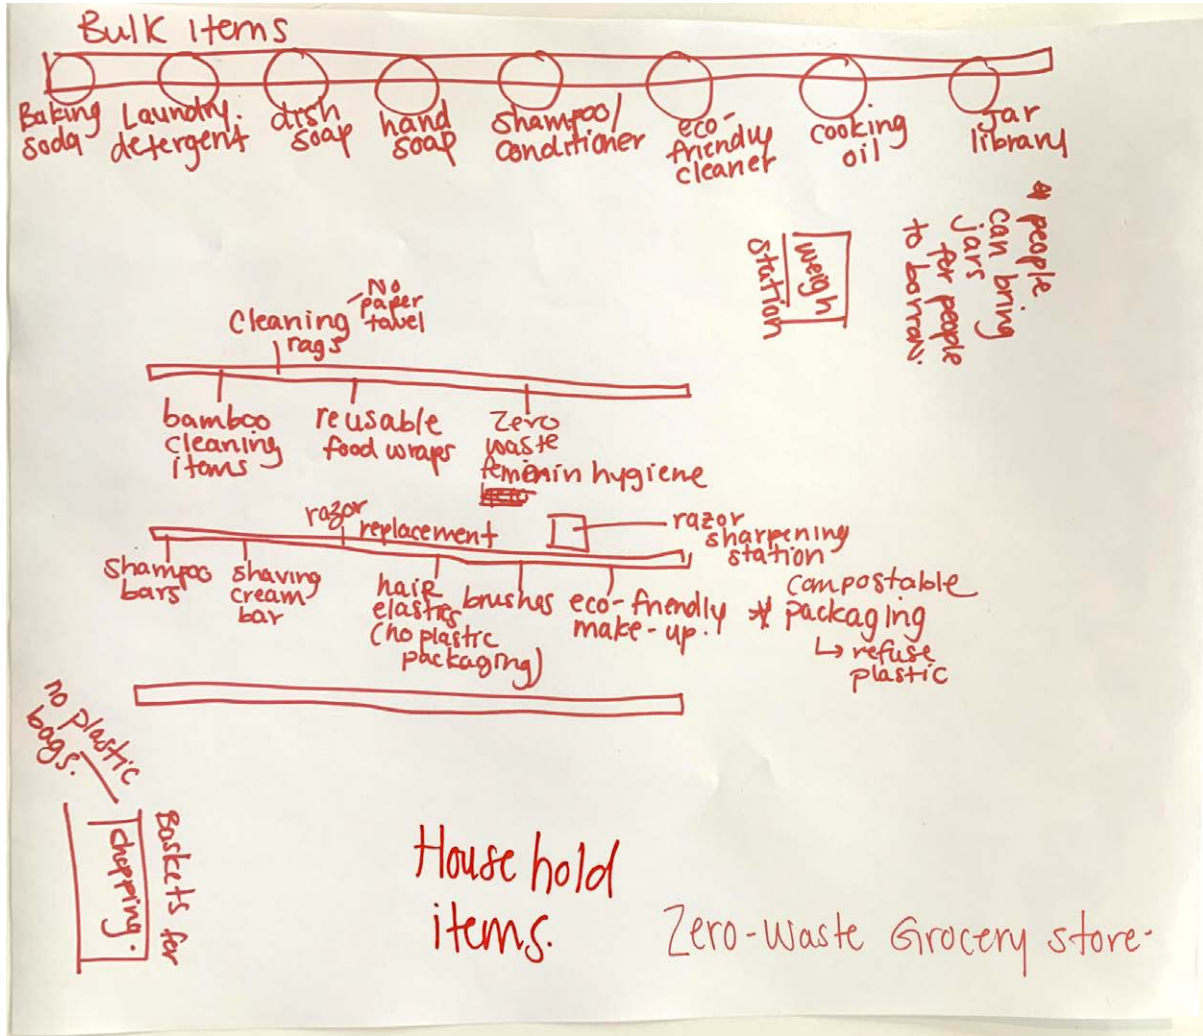 Bulk items
Baking
soda
Laundry
detergent
dish
soap
hand
soap
shampoo/
conditioner
eco-
friendly
cleaner
cooking
oil
Jar
library
* people
can bring
jars
for people
to borrow.
weigh
station
Cleaning
rags
No
paper
towel
bamboo
cleaning
items
reusable
food wraps
Zero
waste
feminin hygiene
razor
replacement
razor
sharpening
station
shampoo
bars
shaving
cream
bar
hair
elastics
(no plastic
packaging)
brushes
eco-friendly
make-up.
* compostable
packaging
↳ refuse
plastic
no plastic
bags.
Baskets for
chopping.
House hold
items.
Zero-Waste Grocery store.